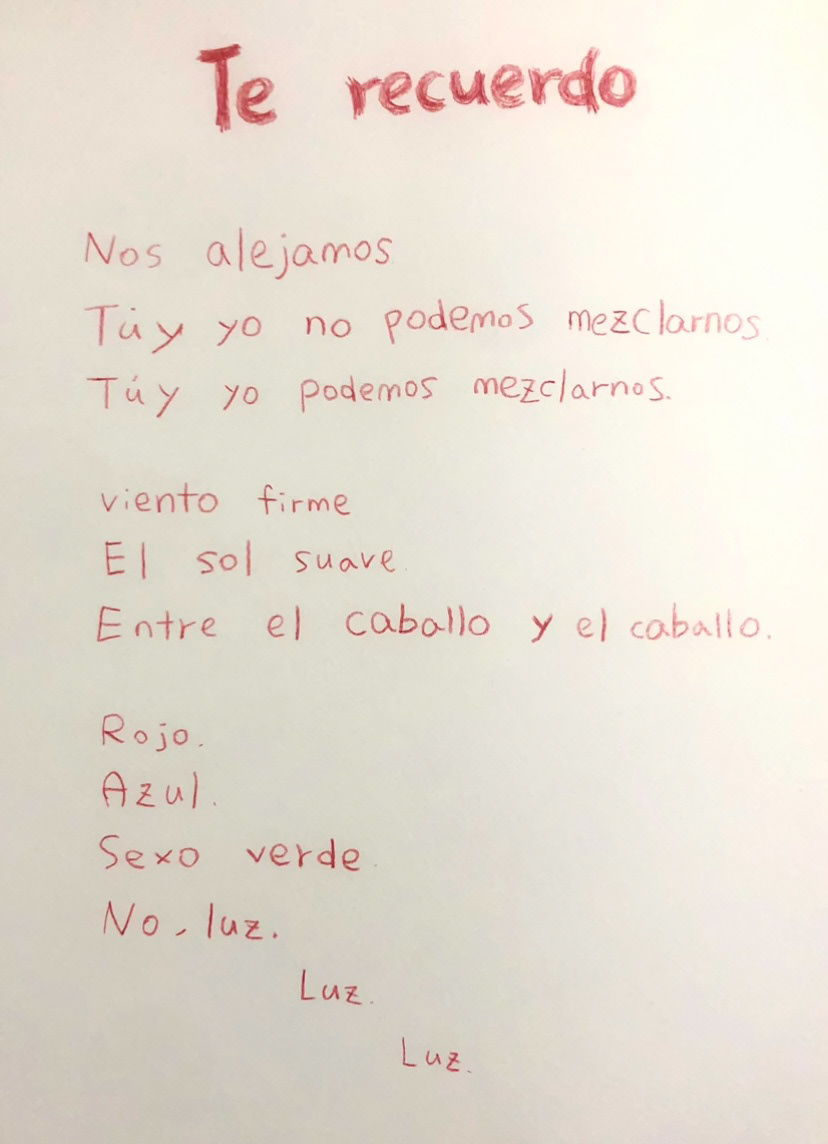 Te recuerdo
Nos alejamos.
Tú y yo no podemos mezclarnos.
Tú y yo podemos mezclarnos.
viento firme
El sol suave.
Entre el caballo y el caballo.
Rojo.
Azul.
Sexo verde.
No, luz.
Luz.
Luz.